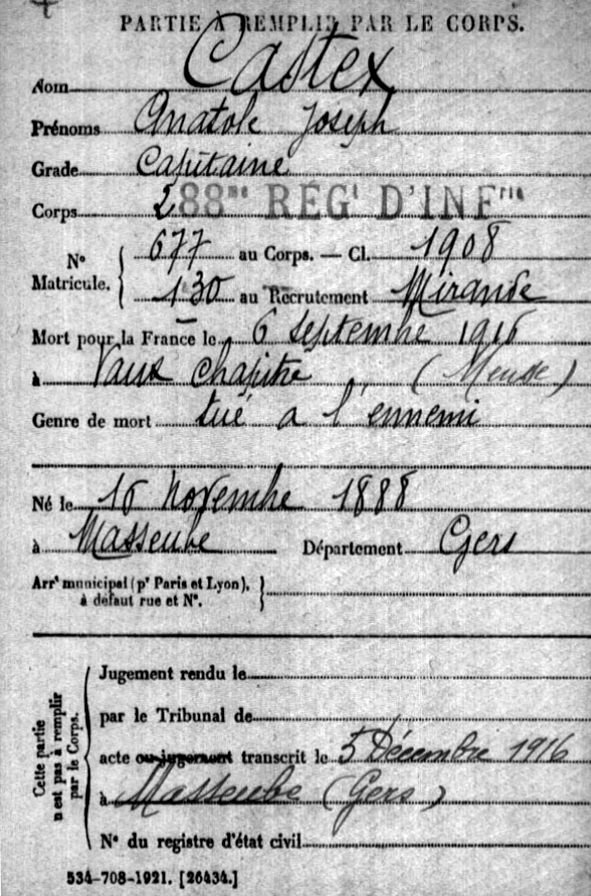 PARTIE À REMPLIR PAR LE CORPS.
Nom Castex
Prénoms Anatole Joseph
Grade Capitaine
Corps 288me REGt D'INFrie
No Matricule. { 677 au Corps. — Cl. 1908
130 au Recrutement Mirande
Mort pour la France le 6 septembre 1916
à Vaux Chapitre (Meuse)
Genre de mort tué a l'ennemi
Né le 16 Novembre 1888
à Masseube Département Gers
Arrt municipal (pr Paris et Lyon), à défaut rue et No. }
Cette partie n'est pas à remplir par le Corps. {
Jugement rendu le
par le Tribunal de
acte ou jugement transcrit le 5 Décembre 1916
à Masseube (Gers)
No du registre d'état civil
534-708-1921. [26434.]